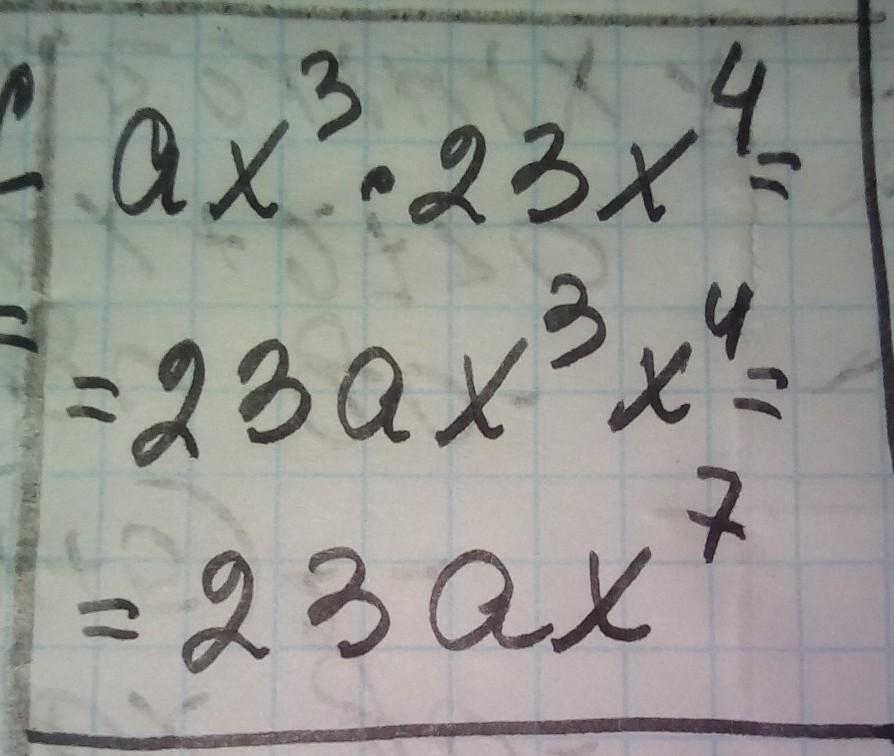 ax³ · 23x⁴ =
= 23ax³x⁴ =
= 23ax⁷